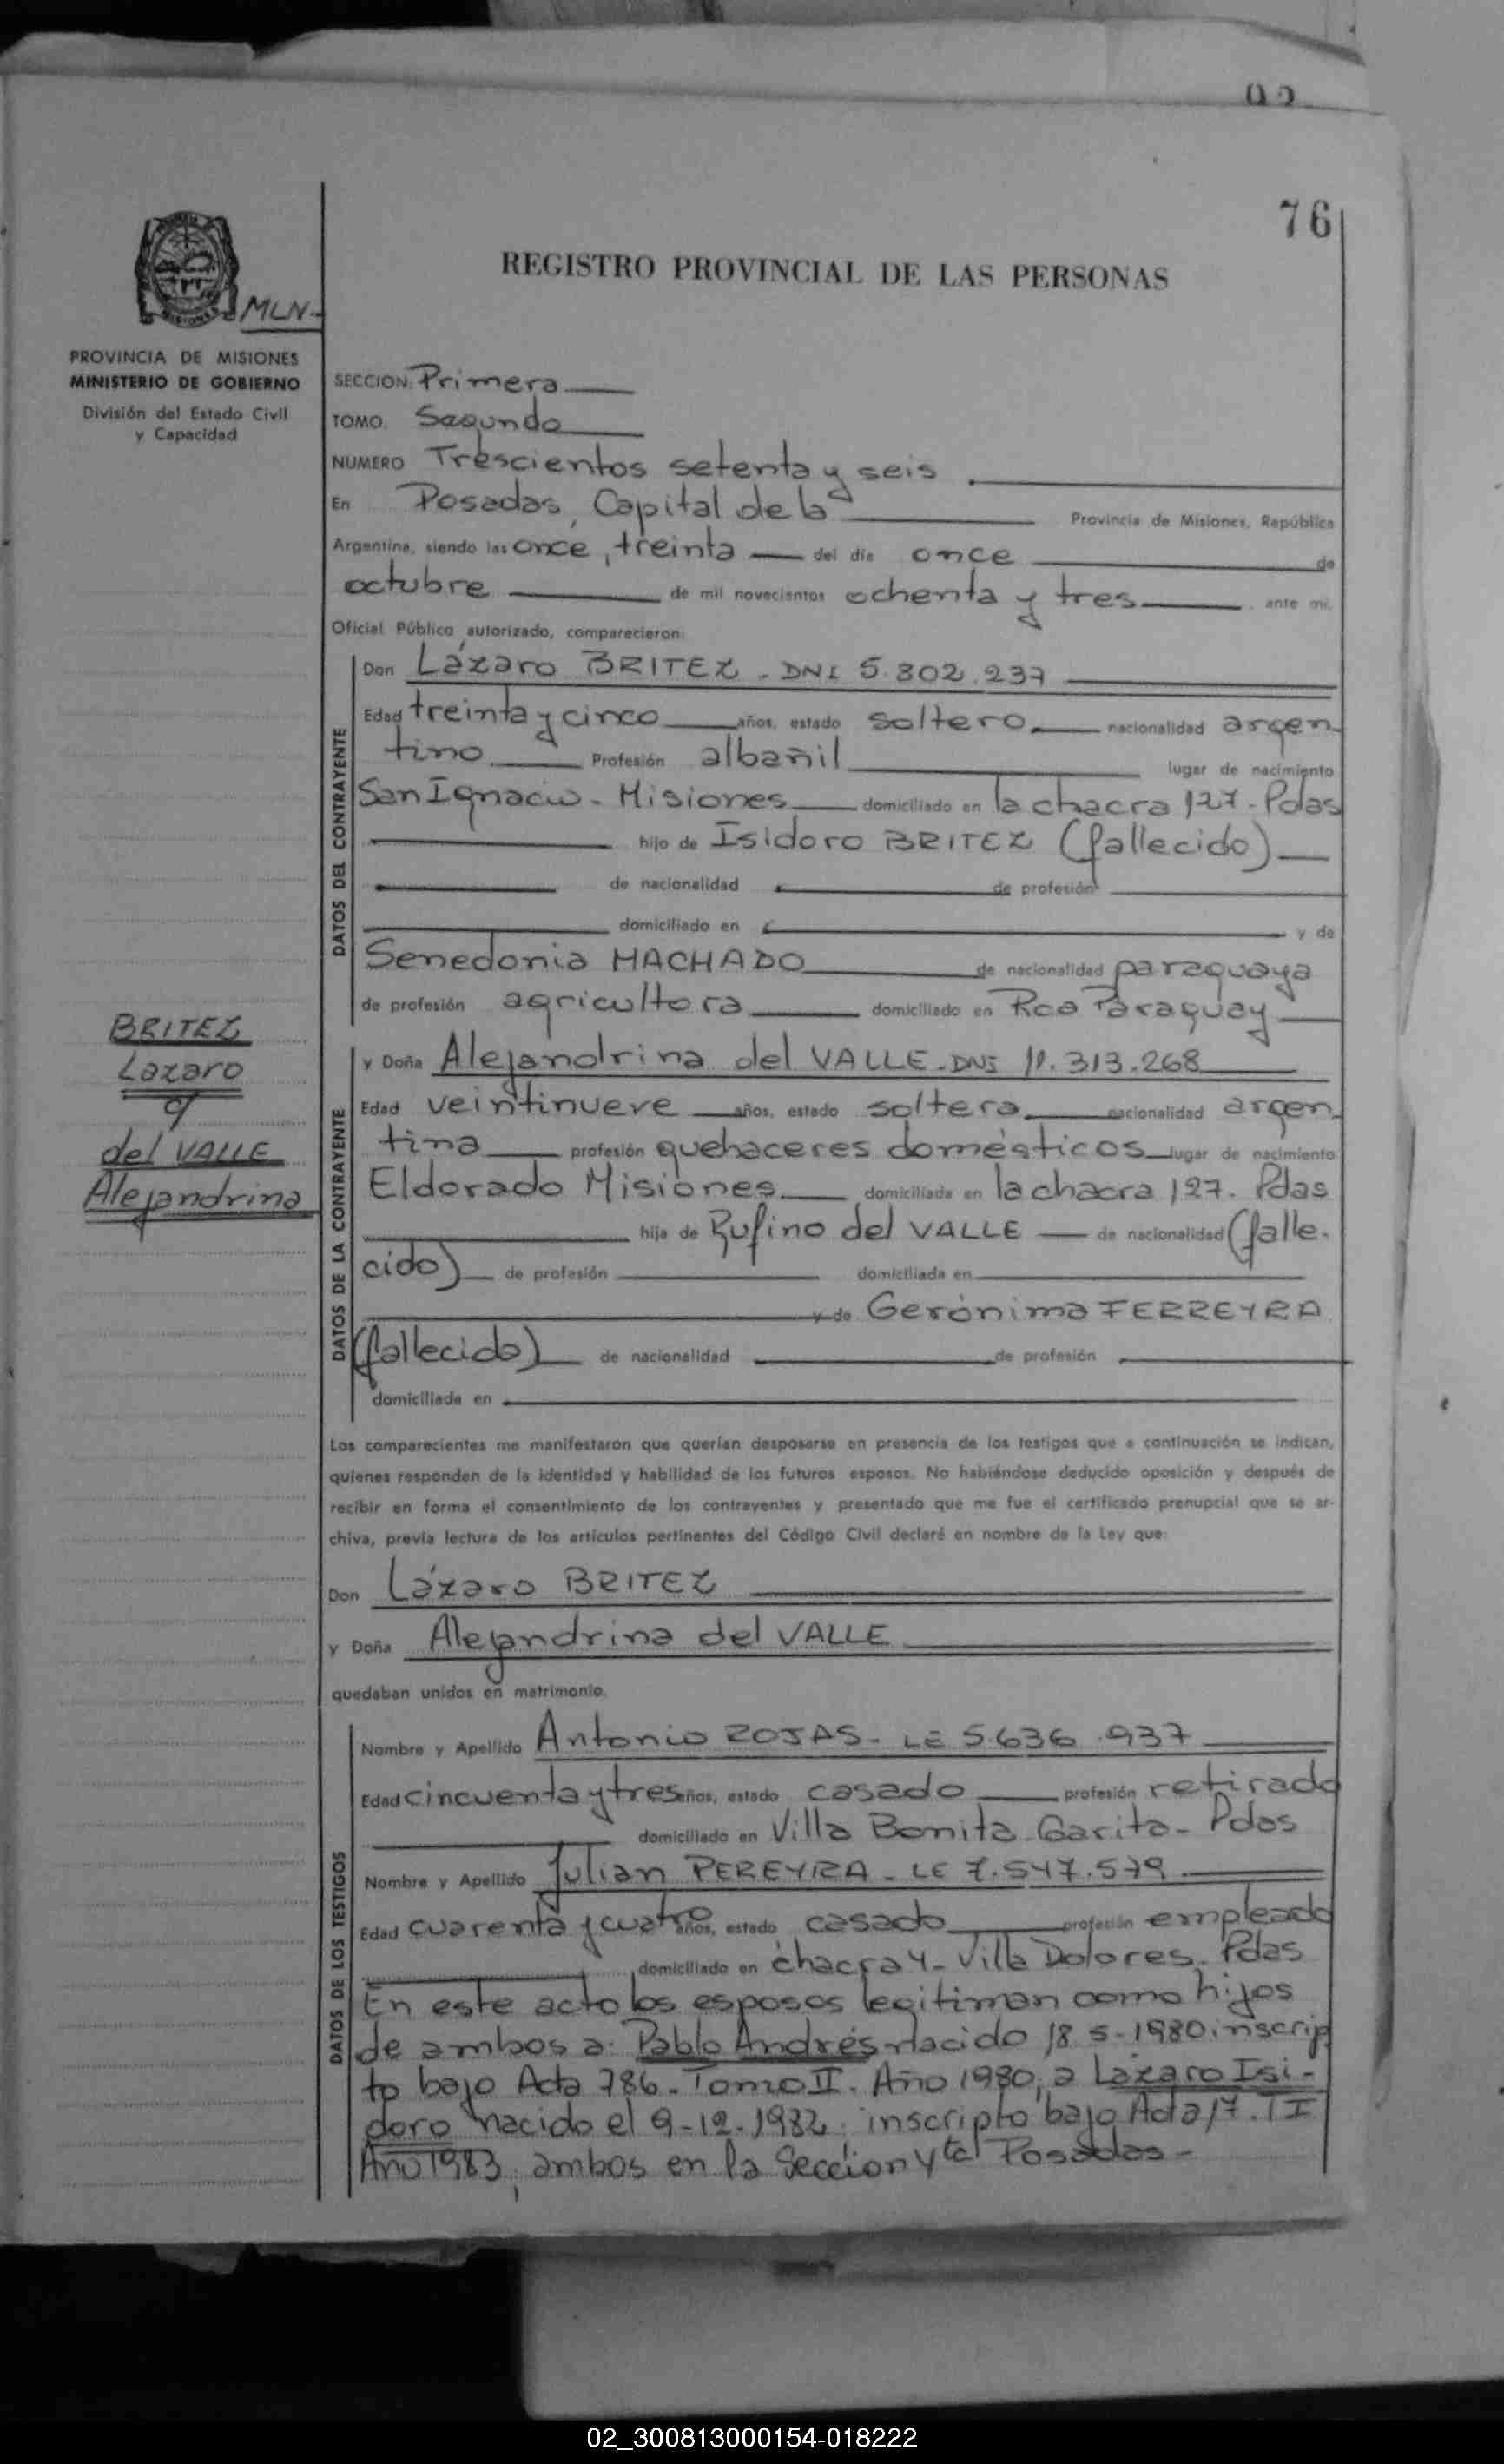 76
REGISTRO PROVINCIAL DE LAS PERSONAS
MLN-
PROVINCIA DE MISIONES
MINISTERIO DE GOBIERNO
División del Estado Civil
y Capacidad
SECCION: Primera
TOMO: Segundo
NUMERO Trescientos setenta y seis
En Posadas, Capital de la Provincia de Misiones, República
Argentina, siendo las once, treinta del día once de
octubre de mil novecientos ochenta y tres ante mí,
Oficial Público autorizado, comparecieron:
DATOS DEL CONTRAYENTE
Don Lázaro BRITEZ - DNI 5.802.237
Edad treinta y cinco años, estado soltero nacionalidad argen-
tino Profesión albañil lugar de nacimiento
San Ignacio - Misiones domiciliado en la chacra 127 - Pdas
hijo de Isidoro BRITEZ (fallecido)
de nacionalidad de profesión
domiciliado en y de
Senedonia MACHADO de nacionalidad paraguaya
de profesión agricultora domiciliado en Rca Paraguay
BRITEZ
Lazaro
c/
del VALLE
Alejandrina
DATOS DE LA CONTRAYENTE
y Doña Alejandrina del VALLE - DNI 11.313.268
Edad veintinueve años, estado soltera nacionalidad argen-
tina profesión quehaceres domésticos lugar de nacimiento
Eldorado Misiones domiciliada en la chacra 127. Pdas
hija de Rufino del VALLE de nacionalidad (falle-
cido) de profesión domiciliada en
y de Gerónima FERREYRA
(fallecida) de nacionalidad de profesión
domiciliada en
Los comparecientes me manifestaron que querían desposarse en presencia de los testigos que a continuación se indican,
quienes responden de la identidad y habilidad de los futuros esposos. No habiéndose deducido oposición y después de
recibir en forma el consentimiento de los contrayentes y presentado que me fue el certificado prenupcial que se ar-
chiva, previa lectura de los artículos pertinentes del Código Civil declaré en nombre de la Ley que:
Don Lázaro BRITEZ
y Doña Alejandrina del VALLE
quedaban unidos en matrimonio.
DATOS DE LOS TESTIGOS
Nombre y Apellido Antonio ROJAS - LE 5.636.937
Edad cincuenta y tres años, estado casado profesión retirado
domiciliado en Villa Bonita Garita - Pdas
Nombre y Apellido Julian PEREYRA - LE 7.547.579
Edad cuarenta y cuatro años, estado casado profesión empleado
domiciliado en chacra 4 - Villa Dolores. Pdas
En este acto los esposos legitiman como hijos
de ambos a: Pablo Andrés nacido 18-5-1980 inscrip
to bajo Acta 786 - Tomo II. Año 1980; a Lazaro Isi-
doro nacido el 9-12-1982; inscripto bajo Acta 17. TI
Año 1983; ambos en la Seccion 4ta Posadas -
02_300813000154-018222